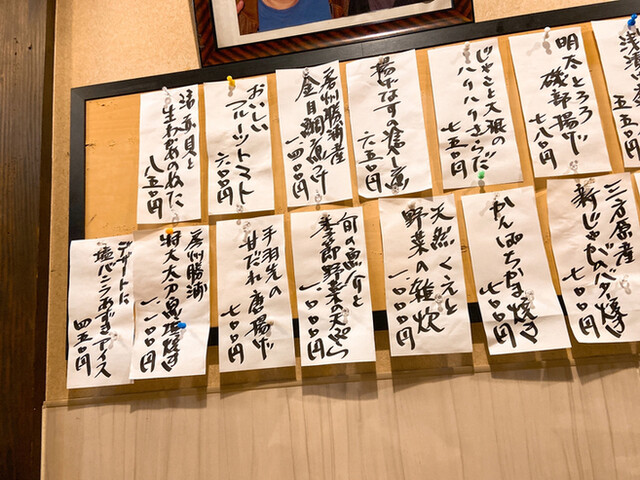 明太とろろ
磯部揚げ
七八〇円
じゃこと大根の
ハリハリさらだ
七五〇円
揚げなすの冷し煮
六五〇円
房州勝浦産
金目鯛煮付
一、四〇〇円
おいしい
フルーツトマト
六〇〇円
赤貝と
生わかめのぬた
八五〇円
三方原産
新じゃがバタ焼き
七〇〇円
かんぱちかま焼き
七〇〇円
天然くえと
野菜の雑炊
一、〇〇〇円
旬の魚介と
季節野菜の天ぷら
一、〇〇〇円
手羽先の
甘だれ唐揚げ
七〇〇円
房州勝浦
特大太刀魚塩焼き
一、一〇〇円
デザートに
塩バニラあずきアイス
四五〇円